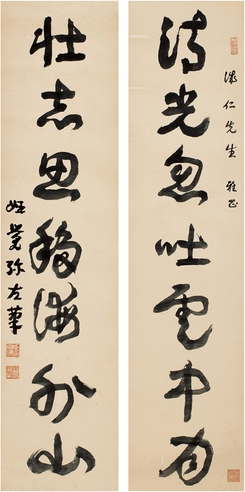 仁先生 雅正
清光忽吐雲中月
壮志思移海外山
覺弥左筆